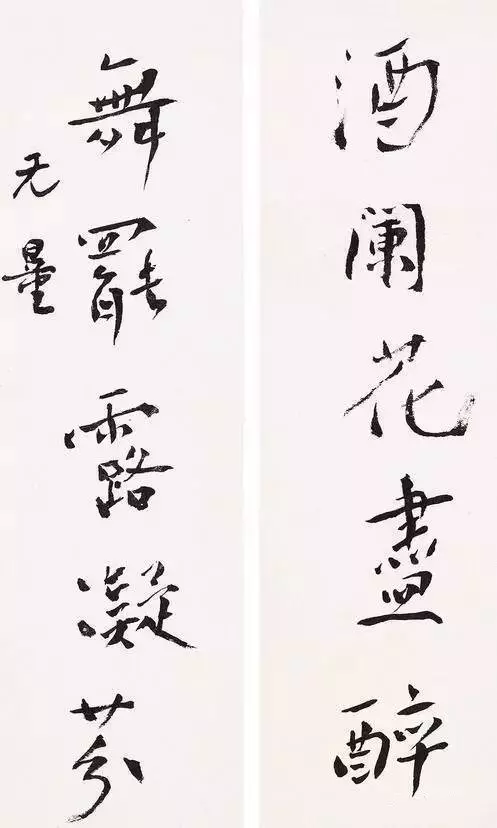 酒阑花盡醉
舞罷露凝芬
无量